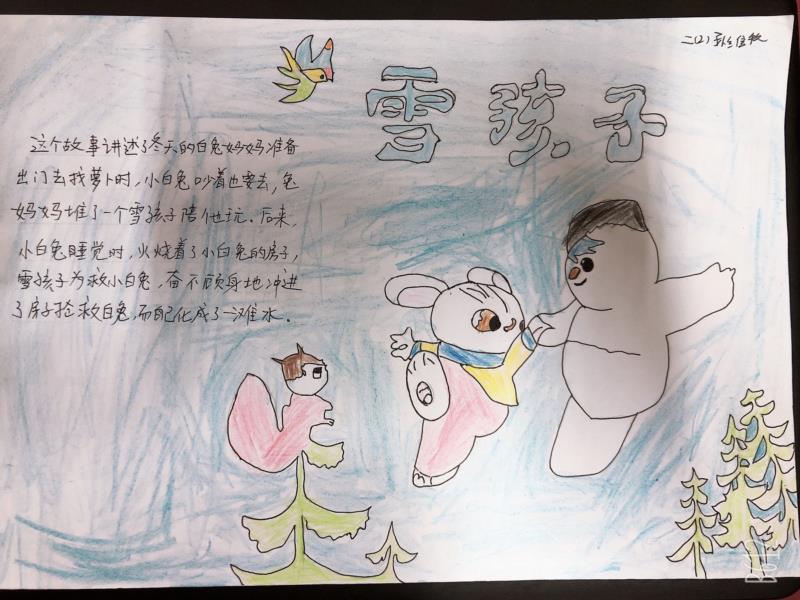 二(2)
雪孩子
这个故事讲述了冬天的白兔妈妈准备
出门去找萝卜时,小白兔吵着也要去,兔
妈妈堆了一个雪孩子陪他玩.后来,
小白兔睡觉时,火烧着了小白兔的房子,
雪孩子为救小白兔,奋不顾身地冲进
了房子抢救白兔,而自己化成了一滩水.